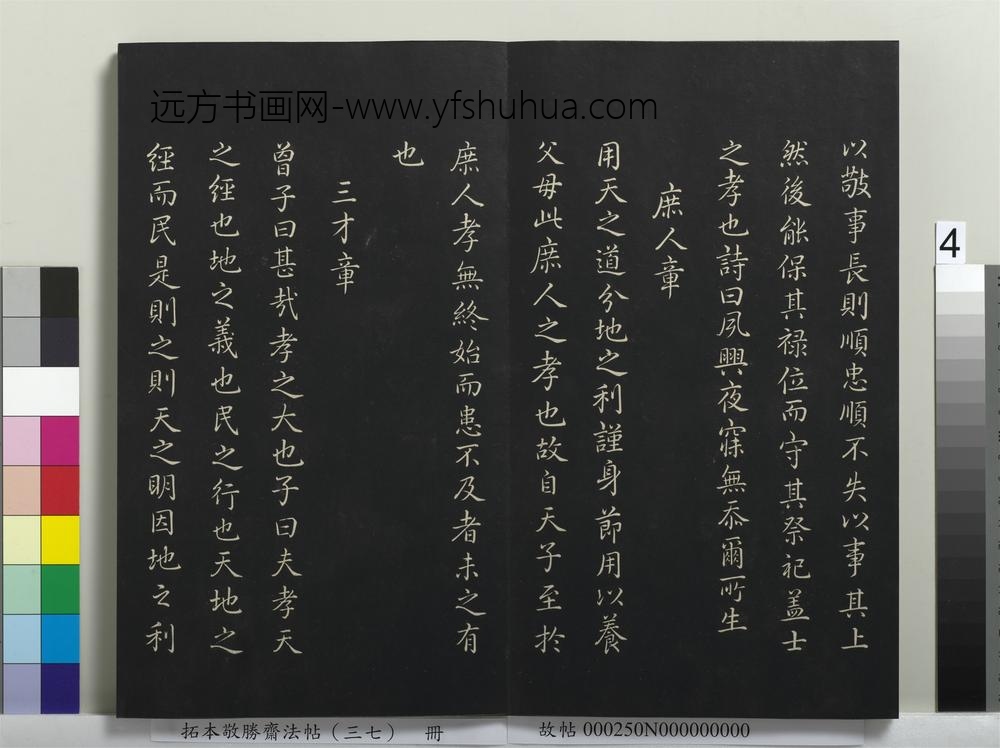 远方书画网-www.yfshuhua.com
以敬事長則順忠順不失以事其上
然後能保其禄位而守其祭祀盖士
之孝也詩曰夙興夜寐無忝爾所生
庶人章
用天之道分地之利謹身節用以養
父母此庶人之孝也故自天子至於
庶人孝無終始而患不及者未之有
也
三才章
曾子曰甚哉孝之大也子曰夫孝天
之經也地之義也民之行也天地之
經而民是則之則天之明因地之利
4
拓本敬勝齋法帖（三七） 冊
故帖 000250N000000000